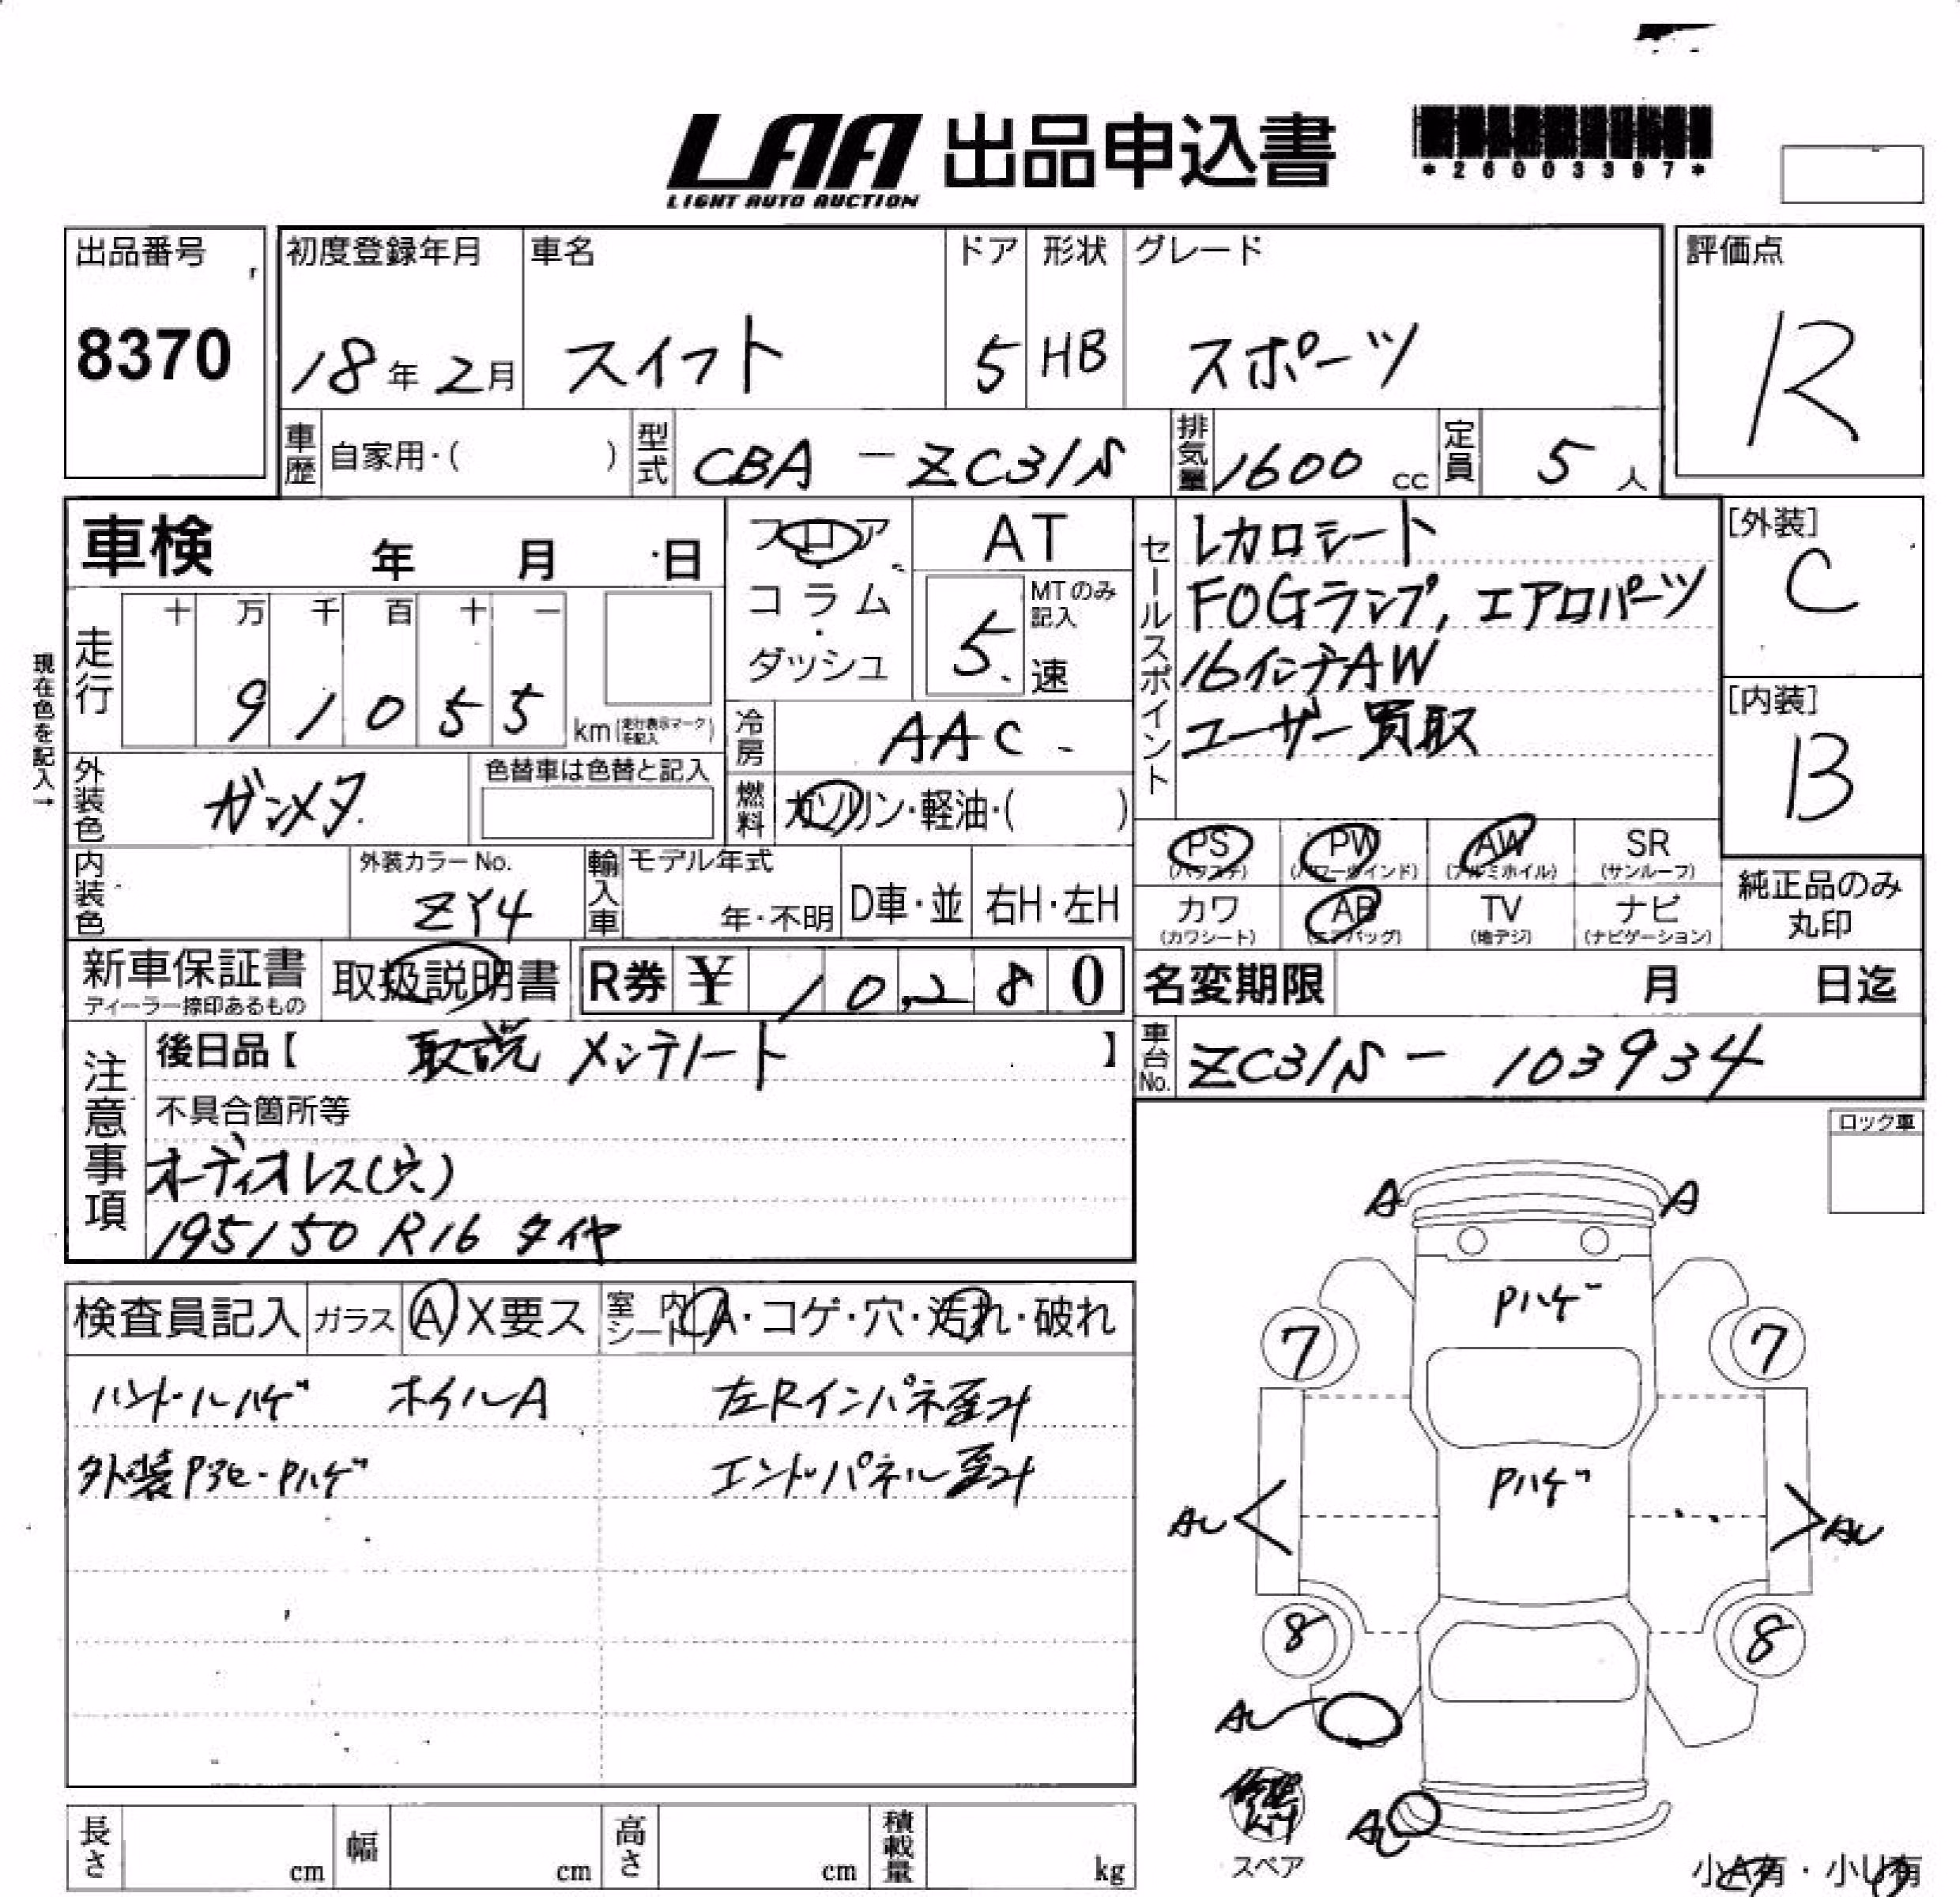 LAA 出品申込書
LIGHT AUTO AUCTION
*26003397*
出品番号
8370
初度登録年月
18年2月
車名
スイフト
ドア
5
形状
HB
グレード
スポーツ
評価点
R
車歴 自家用・( )
型式 CBA-ZC31S
排気量 1600 cc
定員 5人
車検 年 月 日
フロア・コラム・ダッシュ
AT
5速 MTのみ記入
セールスポイント
レカロシート
FOGランプ, エアロパーツ
16インチAW
ユーザー買取
[外装]
C
[内装]
B
現在色を記入→
走行 十 万 千 百 十 一
91055 km (走行表示マークを記入)
冷房 AAC
外装色 ガンメタ
色替車は色替と記入
燃料 ガソリン・軽油・( )
PS (パワステ) PW (パワーウインド) AW (アルミホイル) SR (サンルーフ)
カワ (カワシート) AB (エアバッグ) TV (地デジ) ナビ (ナビゲーション)
純正品のみ丸印
内装色
外装カラーNo.
ZY4
輸入車 モデル年式
年・不明 D車・並 右H・左H
新車保証書
ディーラー捺印あるもの
取扱説明書
R券 ¥ 10,280
名変期限 月 日迄
車台No. ZC31S-103934
注意事項
後日品【 取説 メンテノート 】
不具合箇所等
オーディオレス(穴)
195/50 R16 タイヤ
ロック車
検査員記入 ガラス A X要ス 室内シート A・コゲ・穴・汚れ・破れ
ハンドルハゲ ホイルA 左Rインパネ歪み
外装Pヨセ・Pハゲ エンドパネル歪み
A A
Pハゲ
7 7
Pハゲ
AU AU
8 8
AU
修理kit
スペア
AU
小A有・小U有
長さ cm 幅 cm 高さ cm 積載量 kg